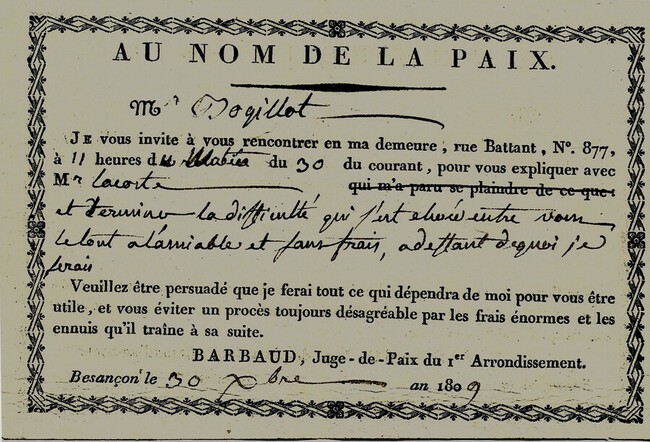 AU NOM DE LA PAIX.
Mr Bogillot
JE vous invite à vous rencontrer en ma demeure, rue Battant, N°. 877,
à 11 heures du Matin du 30 du courant, pour vous expliquer avec
Mr Lacoste qui m'a paru se plaindre de ce que
et terminer la difficulté qui s'est elevée entre vous
le tout a l'amiable et sans frais, a deffaut de quoi je
ferais
Veuillez être persuadé que je ferai tout ce qui dépendra de moi pour vous être
utile, et vous éviter un procès toujours désagréable par les frais énormes et les
ennuis qu'il traîne à sa suite.
BARBAUD, Juge-de-Paix du 1er Arrondissement.
Besançon le 30 xbre an 1809